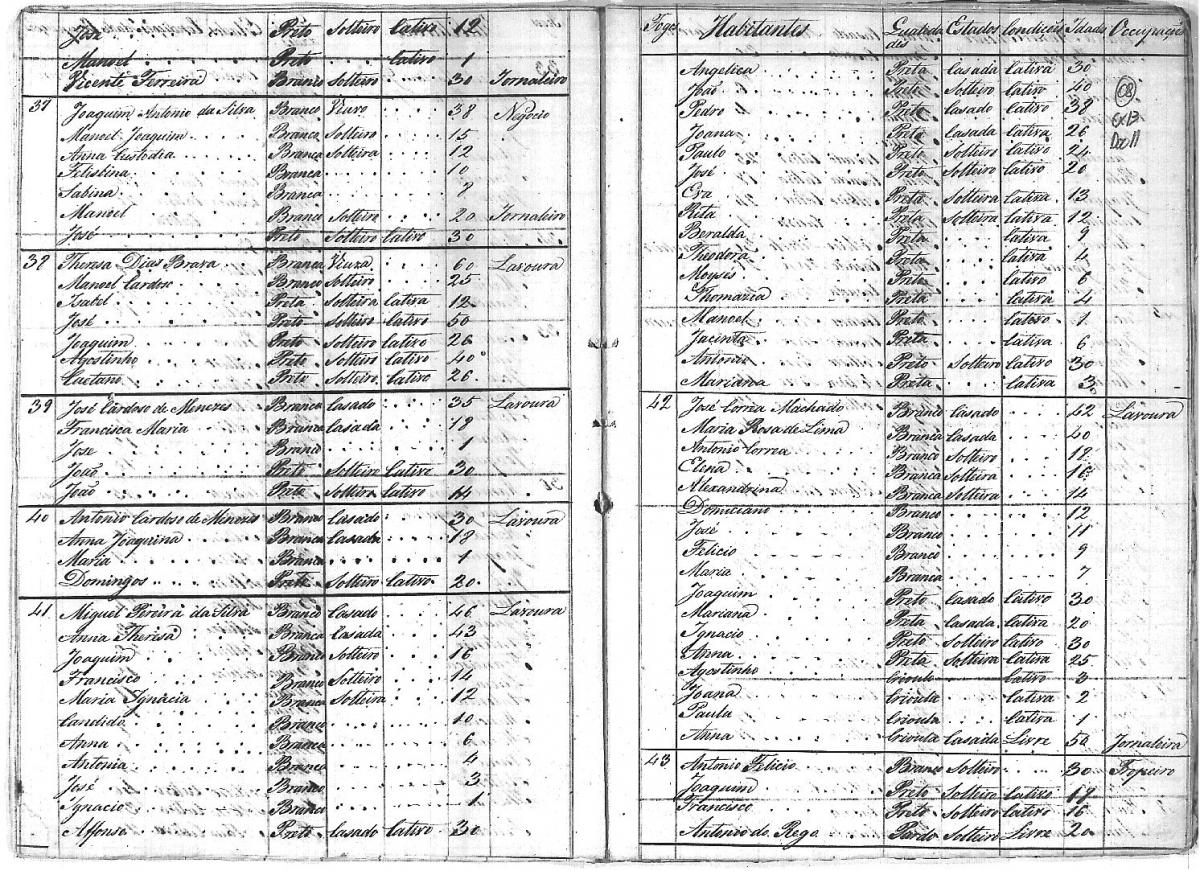 José Preto Solteiro Cativo 12
Manoel Preto Cativo 1
Vicente Ferreira Branco Solteiro 30 Jornaleiro
37 Joaquim Antonio da Silva Branco Viuvo 38 Negocio
Manoel Joaquim Branco Solteiro 15
Anna Custodia Branca Solteira 12
Felistina Branca 10
Sabina Branca 7
Manoel Branco Solteiro 20 Jornaleiro
José Preto Solteiro Cativo 30
38 Theresa Dias Brava Branca Viuva 60 Lavoura
Manoel Cardoso Branco Solteiro 25
Isabel Preta Solteira Cativa 12
José Preto Solteiro Cativo 50
Joaquim Preto Solteiro Cativo 26
Agostinho Preto Solteiro Cativo 40
Caetano Preto Solteiro Cativo 26
39 José Cardoso de Menezes Branco Casado 35 Lavoura
Francisca Maria Branca Casada
José Branco 1
João Preto Solteiro Cativo 30
João Preto Solteiro Cativo 14
40 Antonio Cardoso de Minezes Branco Casado 30 Lavoura
Anna Joaquina Branca Casada
Maria Branca 1
Domingos Preto Solteiro Cativo 20
41 Miguel Pereira da Silva Branco Casado 46 Lavoura
Anna Theresa Branca Casada 43
Joaquim Branco Solteiro 16
Francisco Branco Solteiro 14
Maria Ignacia Branca Solteira 12
Candido Branco 10
Anna Branca 6
Antonia Branca 4
José Branco 3
Ignacio Branco 1
Affonso Preto Casado Cativo 30
Fogos Habitantes Qualidades Estados Condições Idades Occupações
Angelica Preta Casada Cativa 30
João Preto Solteiro Cativo 40
Pedro Preto Casado Cativo 38
Joana Preta Casada Cativa 26
Paulo Preto Solteiro Cativo 24
José Preto Solteiro Cativo 20
Eva Preta Solteira Cativa 13
Rita Preta Solteira Cativa 12
Beralda Preta Cativa 9
Theodora Preta Cativa 4
Moysés Preto Cativo 6
Thomazia Preta Cativa 4
Manoel Preto Cativo 1
Jacinta Preta Cativa 6
Antonio Preto Solteiro Cativo 30
Mariana Preta Cativa 3
08
Cx 13
Doc 11
42 José Correa Machado Branco Casado 42 Lavoura
Maria Rosa de Lima Branca Casada 40
Antonio Correa Branco Solteiro
Elena Branca Solteira 16
Alexandrina Branca Solteira 14
Domiciano Branco 12
José Branco 11
Felicio Branco 9
Maria Branca 7
Joaquim Preto Casado Cativo 30
Mariana Preta Casada Cativa 20
Ignacio Preto Solteiro Cativo 30
Anna Preta Solteira Cativa 25
Agostinho Crioulo Cativo 3
Joana Crioula Cativa 2
Paula Crioula Cativa 1
Anna Crioula Casada Livre 50 Jornaleira
43 Antonio Felicio Branco Solteiro 30 Tropeiro
Joaquim Preto Solteiro Cativo
Francisco Preto Solteiro Cativo 16
Antonio do Rego Pardo Solteiro Livre 20